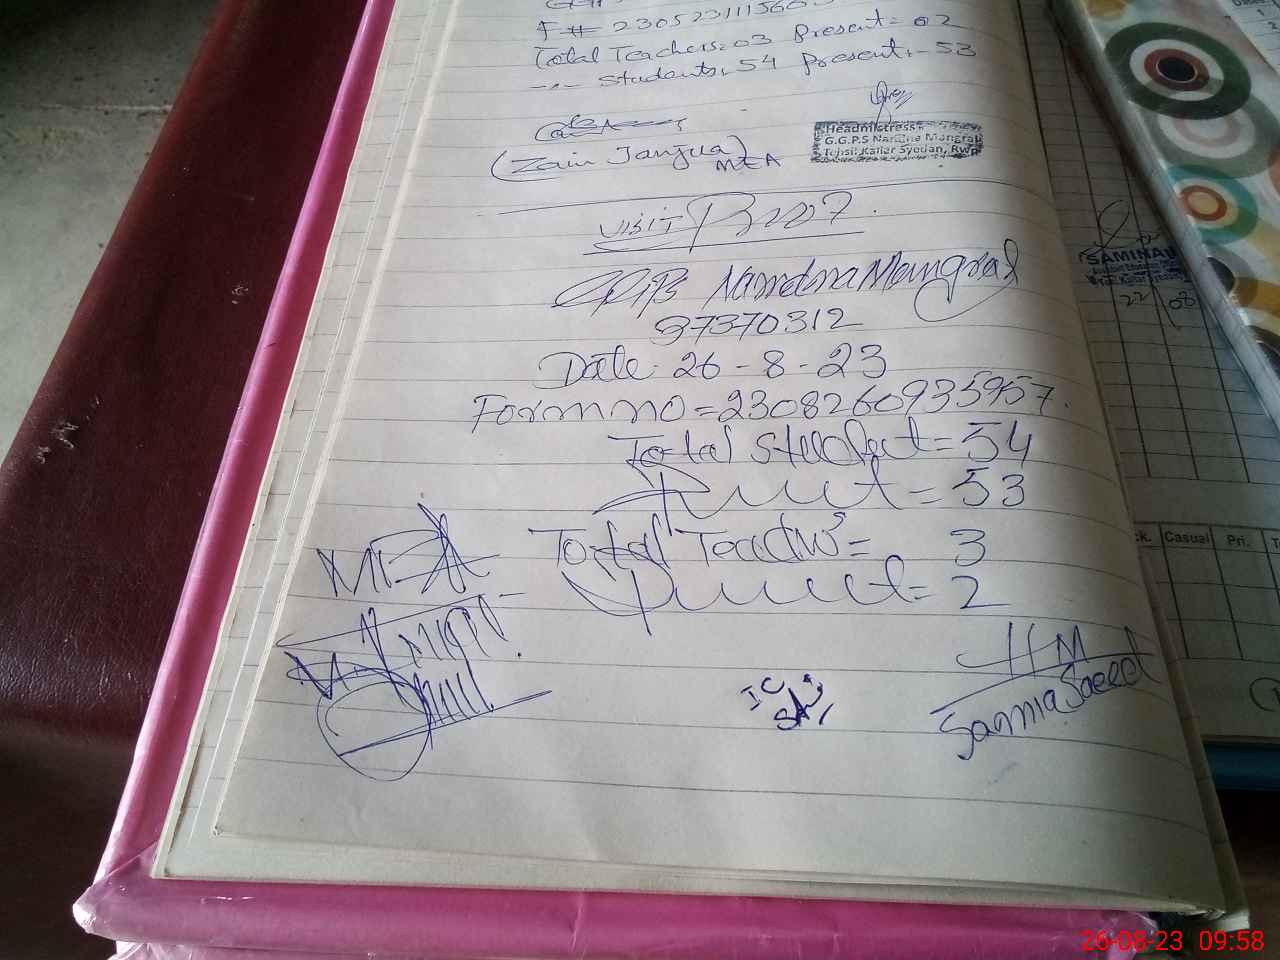 F# 230523111560
Total Teachers: 03 Present = 02
Students: 54 Present: 53
(Zain Janjua)
MEA
Headmistress
G.G.P.S Nandna Mangral
Tehsil Kallar Syedan, RWP
VISIT
Nandna Mangral
37370312
Date. 26-8-23
Form no = 2308260935957.
Total Student = 54
Present = 53
Total Teachers = 3
Present = 2
MEA
HM
Sannia Saeed
SAMINA
22 08
Casual Pri.
26-08-23 09:58